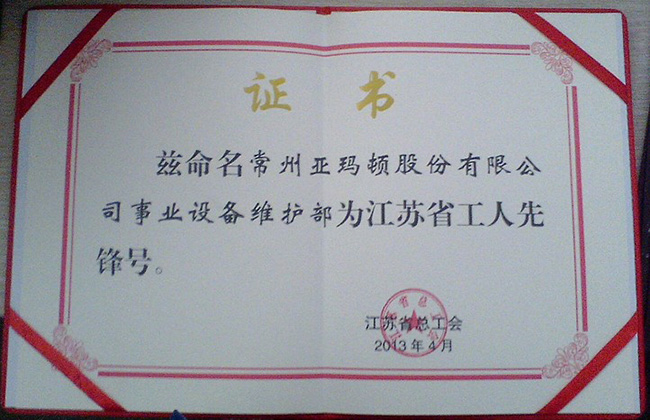 证书
兹命名常州亚玛顿股份有限公
司事业设备维护部为江苏省工人先
锋号。
江苏省总工会
2013年4月